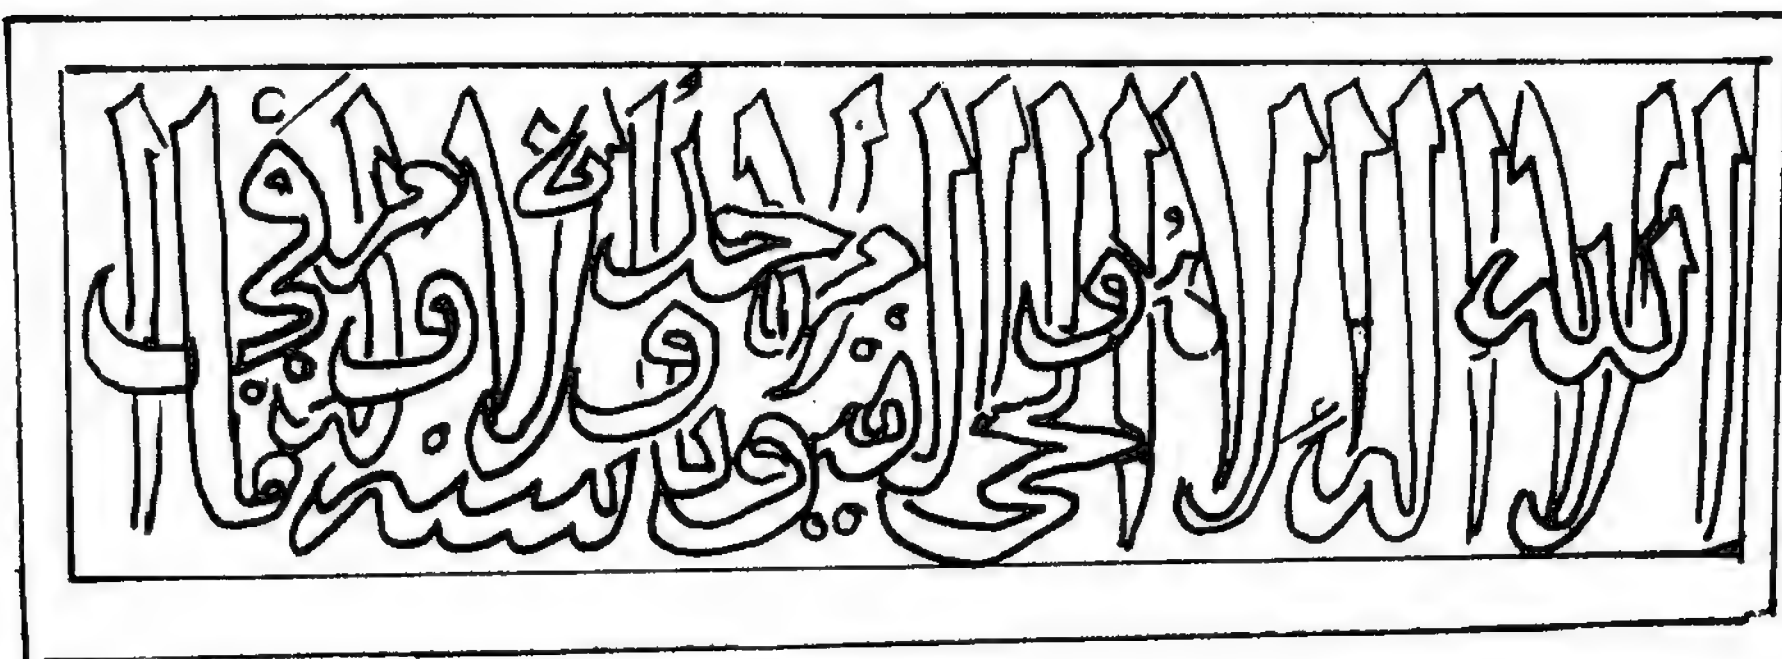 الله لا اله الا هو الحي القيوم لا تأخذه سنة ولا نوم له ما في